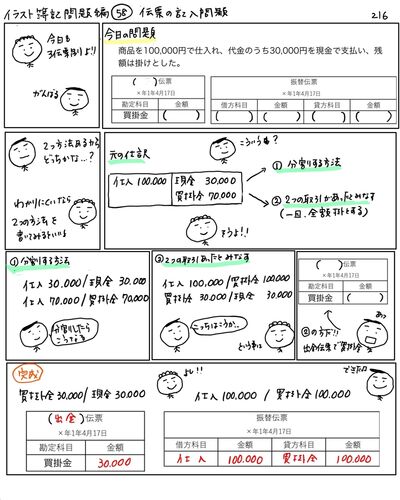 イラスト簿記問題編 58 伝票の記入問題
216
今日も
3伝票制よ!!
がんばる
今日の問題
商品を100,000円で仕入れ、代金のうち30,000円を現金で支払い、残
額は掛けとした。
( )伝票
×年1年4月17日
勘定科目 金額
買掛金 ( )
振替伝票
×年1年4月17日
借方科目 金額 貸方科目 金額
( ) ( ) ( ) ( )
2つ方法あるから
どっちかな…?
わかりにくいなら
2つの方法を
書いてみるといいよ
元の仕訳
仕入 100,000 現金 30,000
買掛金 70,000
こういうの?
そうよ!!
① 分割する方法
② 2つの取引があったとみなす
(一旦、全額掛とする)
①分割する方法
仕入 30,000/現金 30,000
仕入 70,000/買掛金 70,000
分割したら
こうなる
②2つの取引あったとみなす
仕入 100,000/買掛金 100,000
買掛金 30,000/現金 30,000
こっちはこうか。
という事は
( )伝票
×年1年4月17日
勘定科目 金額
買掛金 ( )
あっ
②の方だ!!
出金伝票で買掛金
完成
買掛金 30,000/現金 30,000
よし!!
仕入 100,000/買掛金 100,000
できたね
(出金)伝票
×年1年4月17日
勘定科目 金額
買掛金 30,000
振替伝票
×年1年4月17日
借方科目 金額 貸方科目 金額
仕入 100,000 買掛金 100,000